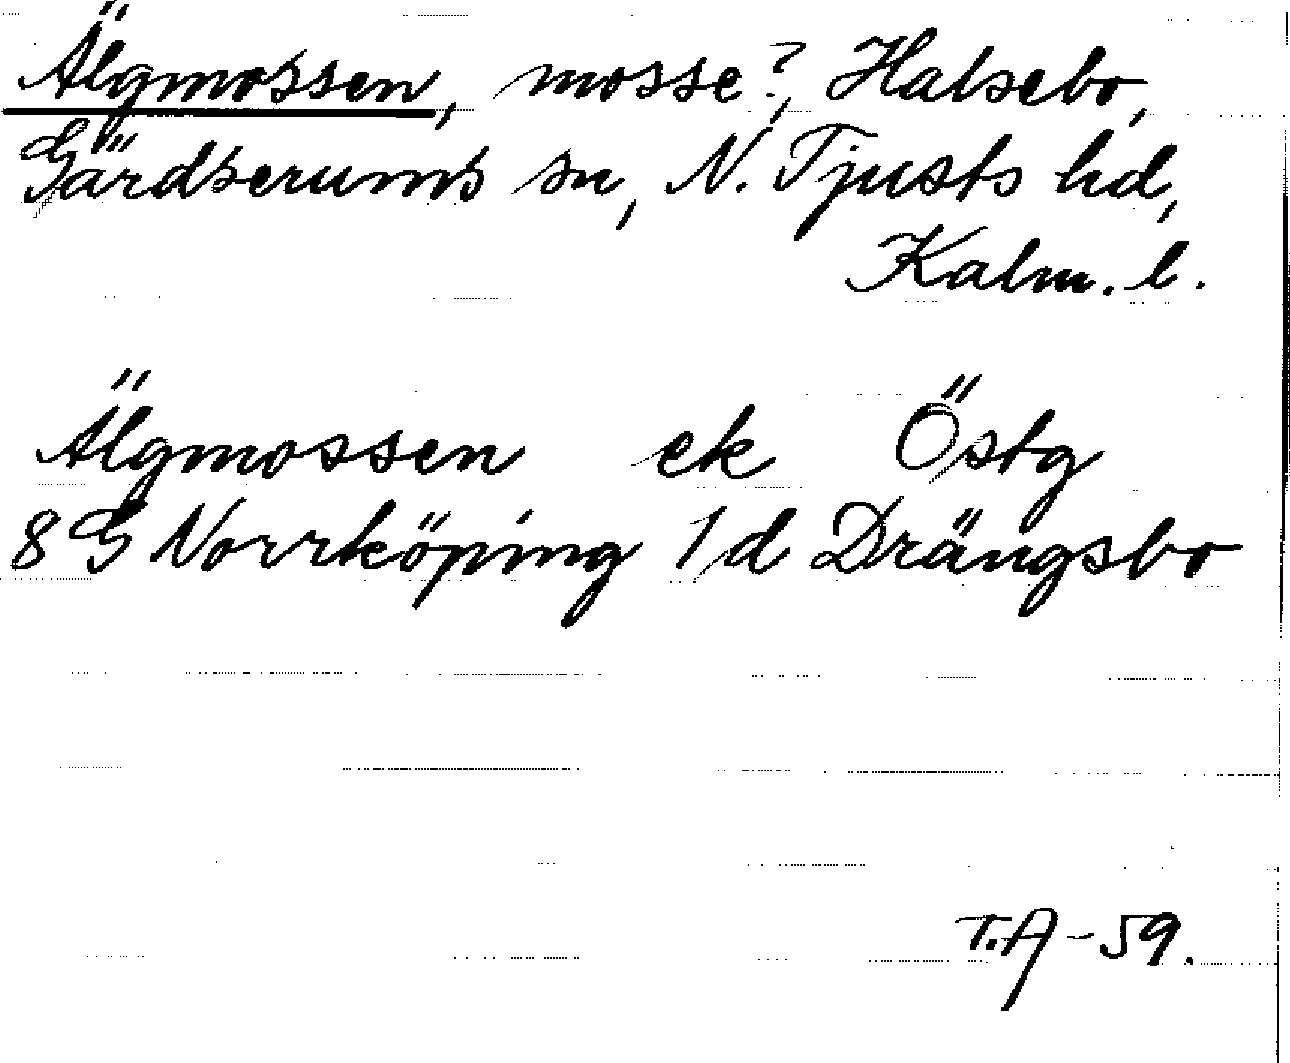 Älgmossen, mosse?, Halsebo,
Gärdserums sn, N. Tjusts hd,
Kalm. l.
Älgmossen ek Östg
8 G Norrköping 1 d Drängsbo
T.A-59.